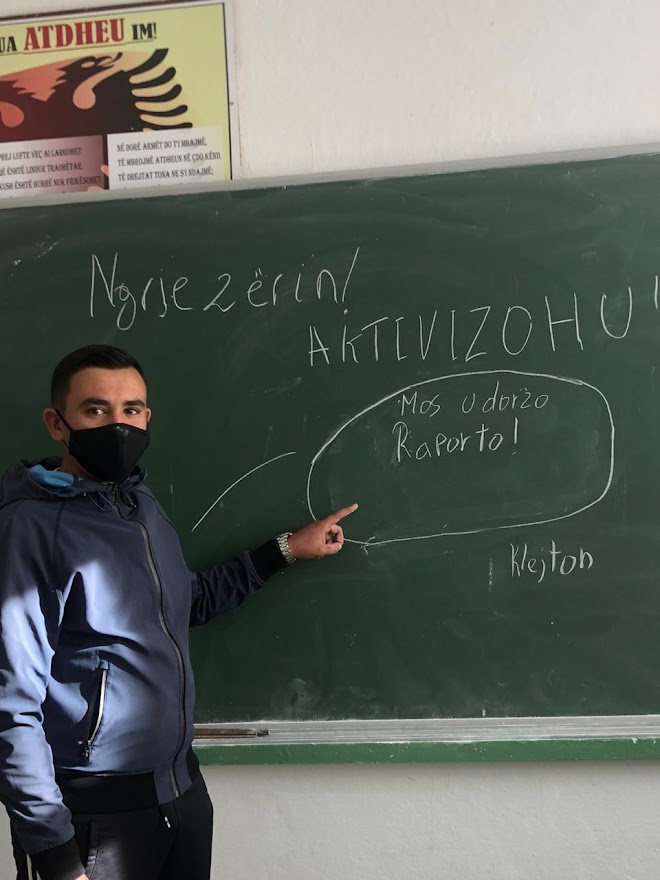 UA ATDHEU IM!
PREJ LUFTE VEÇ AI LARGOHET
QË ËSHTË LINDUR TRADHËTAR,
KUSH ËSHTË BURRË NUK FRIKËSOHET,
NË DORË ARMËT DO T'I MBAJMË,
TË MBROJMË ATDHEUN NË ÇDO KËND,
TË DREJTAT TONA NE S'I NDAJMË;
Ngrje zërin!
AKTIVIZOHU!
Mos u dorzo
Raporto!
Klejton